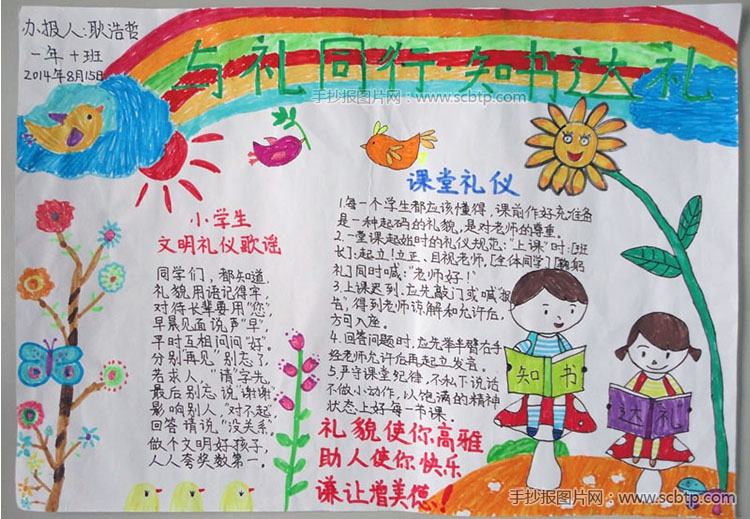 办报人:耿浩哲
一年十班
2014年8月15日
与礼同行·知书达礼
手抄报图片网：www.scbtp.com
小学生
文明礼仪歌谣
同学们，都知道，
礼貌用语记得牢，
对待长辈要用“您”，
早晨见面说声“早”，
平时互相问问“好”。
分别“再见”别忘了，
若求人，“请”字先，
最后别忘说“谢谢”，
影响别人，“对不起”，
回答请说“没关系”，
做个文明好孩子，
人人夸奖数第一。
课堂礼仪
1.每一个学生都应该懂得，课前作好充准备
是一种起码的礼貌，是对老师的尊重。
2.一堂课起始时的礼仪规范：“上课”时：[班
长]：起立！立正，目视老师，[全体同学][鞠躬
礼]同时喊：“老师好！”
3.上课迟到，应先敲门或喊“报
告”，得到老师谅解和允许后，
方可入座。
4.回答问题时，应先举手臂右手
经老师允许后再起立发言。
5.严守课堂纪律，不私下说话
不做小动作，以饱满的精神
状态上好每一节课。
礼貌使你高雅
助人使你快乐
谦让增美德！
知书
达礼
手抄报图片网：www.scbtp.com